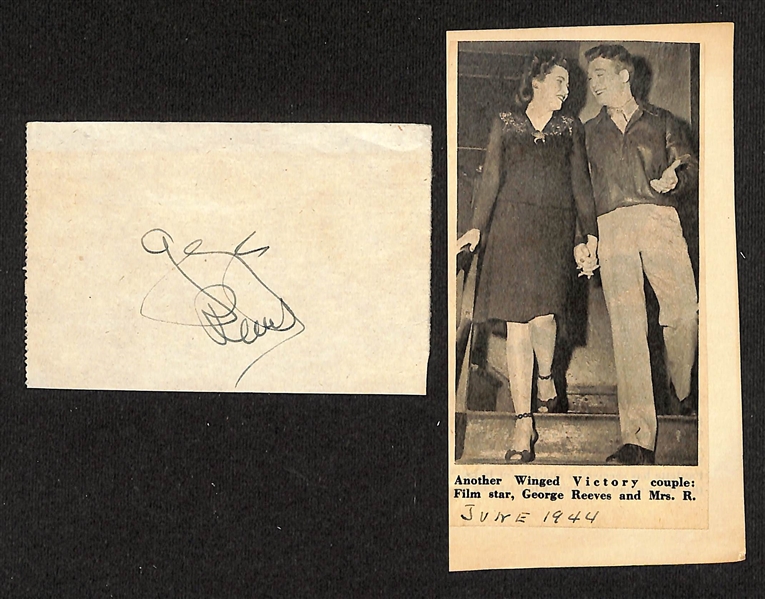 George
Reeves
Another Winged Victory couple:
Film star, George Reeves and Mrs. R.
JUNE 1944